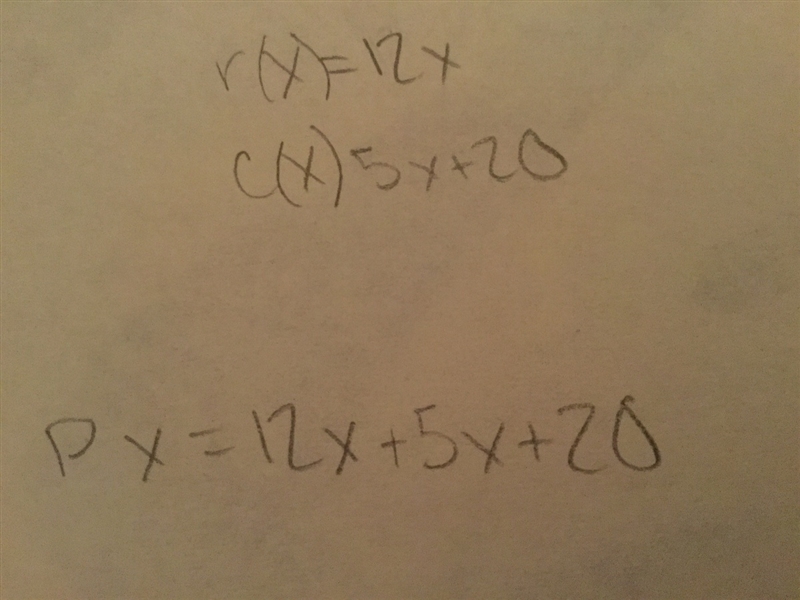 r(x)=12x
C(x)5x+20
Px=12x+5x+20